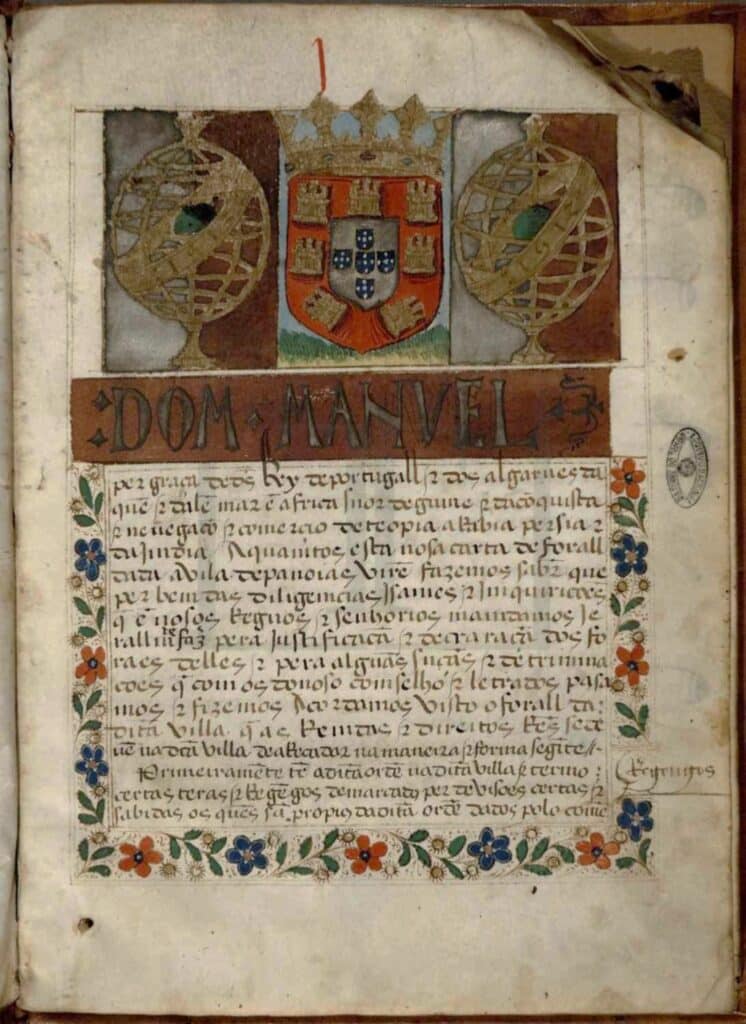 DOM MANVEL
per graça de ds Rey de portugall & dos algarues da
quē & dalē mar ē africa snor de guine & da cōquista
& neuegacō & comercio de teopia arabia persia &
da Jmdia A quamtos esta nosa carta de forall
dada a vila de panoias virē fazemos sabr que
per bem das diligencias Isames & Imquiricoes
q̄ ē nosos Regnos & senhorios mamdamos Je
rallmēte faz pera Justificacā & decraracā dos fo
raes delles & pera algūas & detrimina
coes q̄ com os do noso comselho & letrados pasa
mos & fizemos Acordamos visto o forall da
dita villa q̄ as Remdas & direitos se de
uē na dita villa de aRecadar na maneira & forma segite
Primeiramēte tē a dita ordē na dita villa & termo
certas teras & Regēgos demarcados per devisoes certas &
sabidas os ques sā propios da dita ordē dados polo comē
Regengos